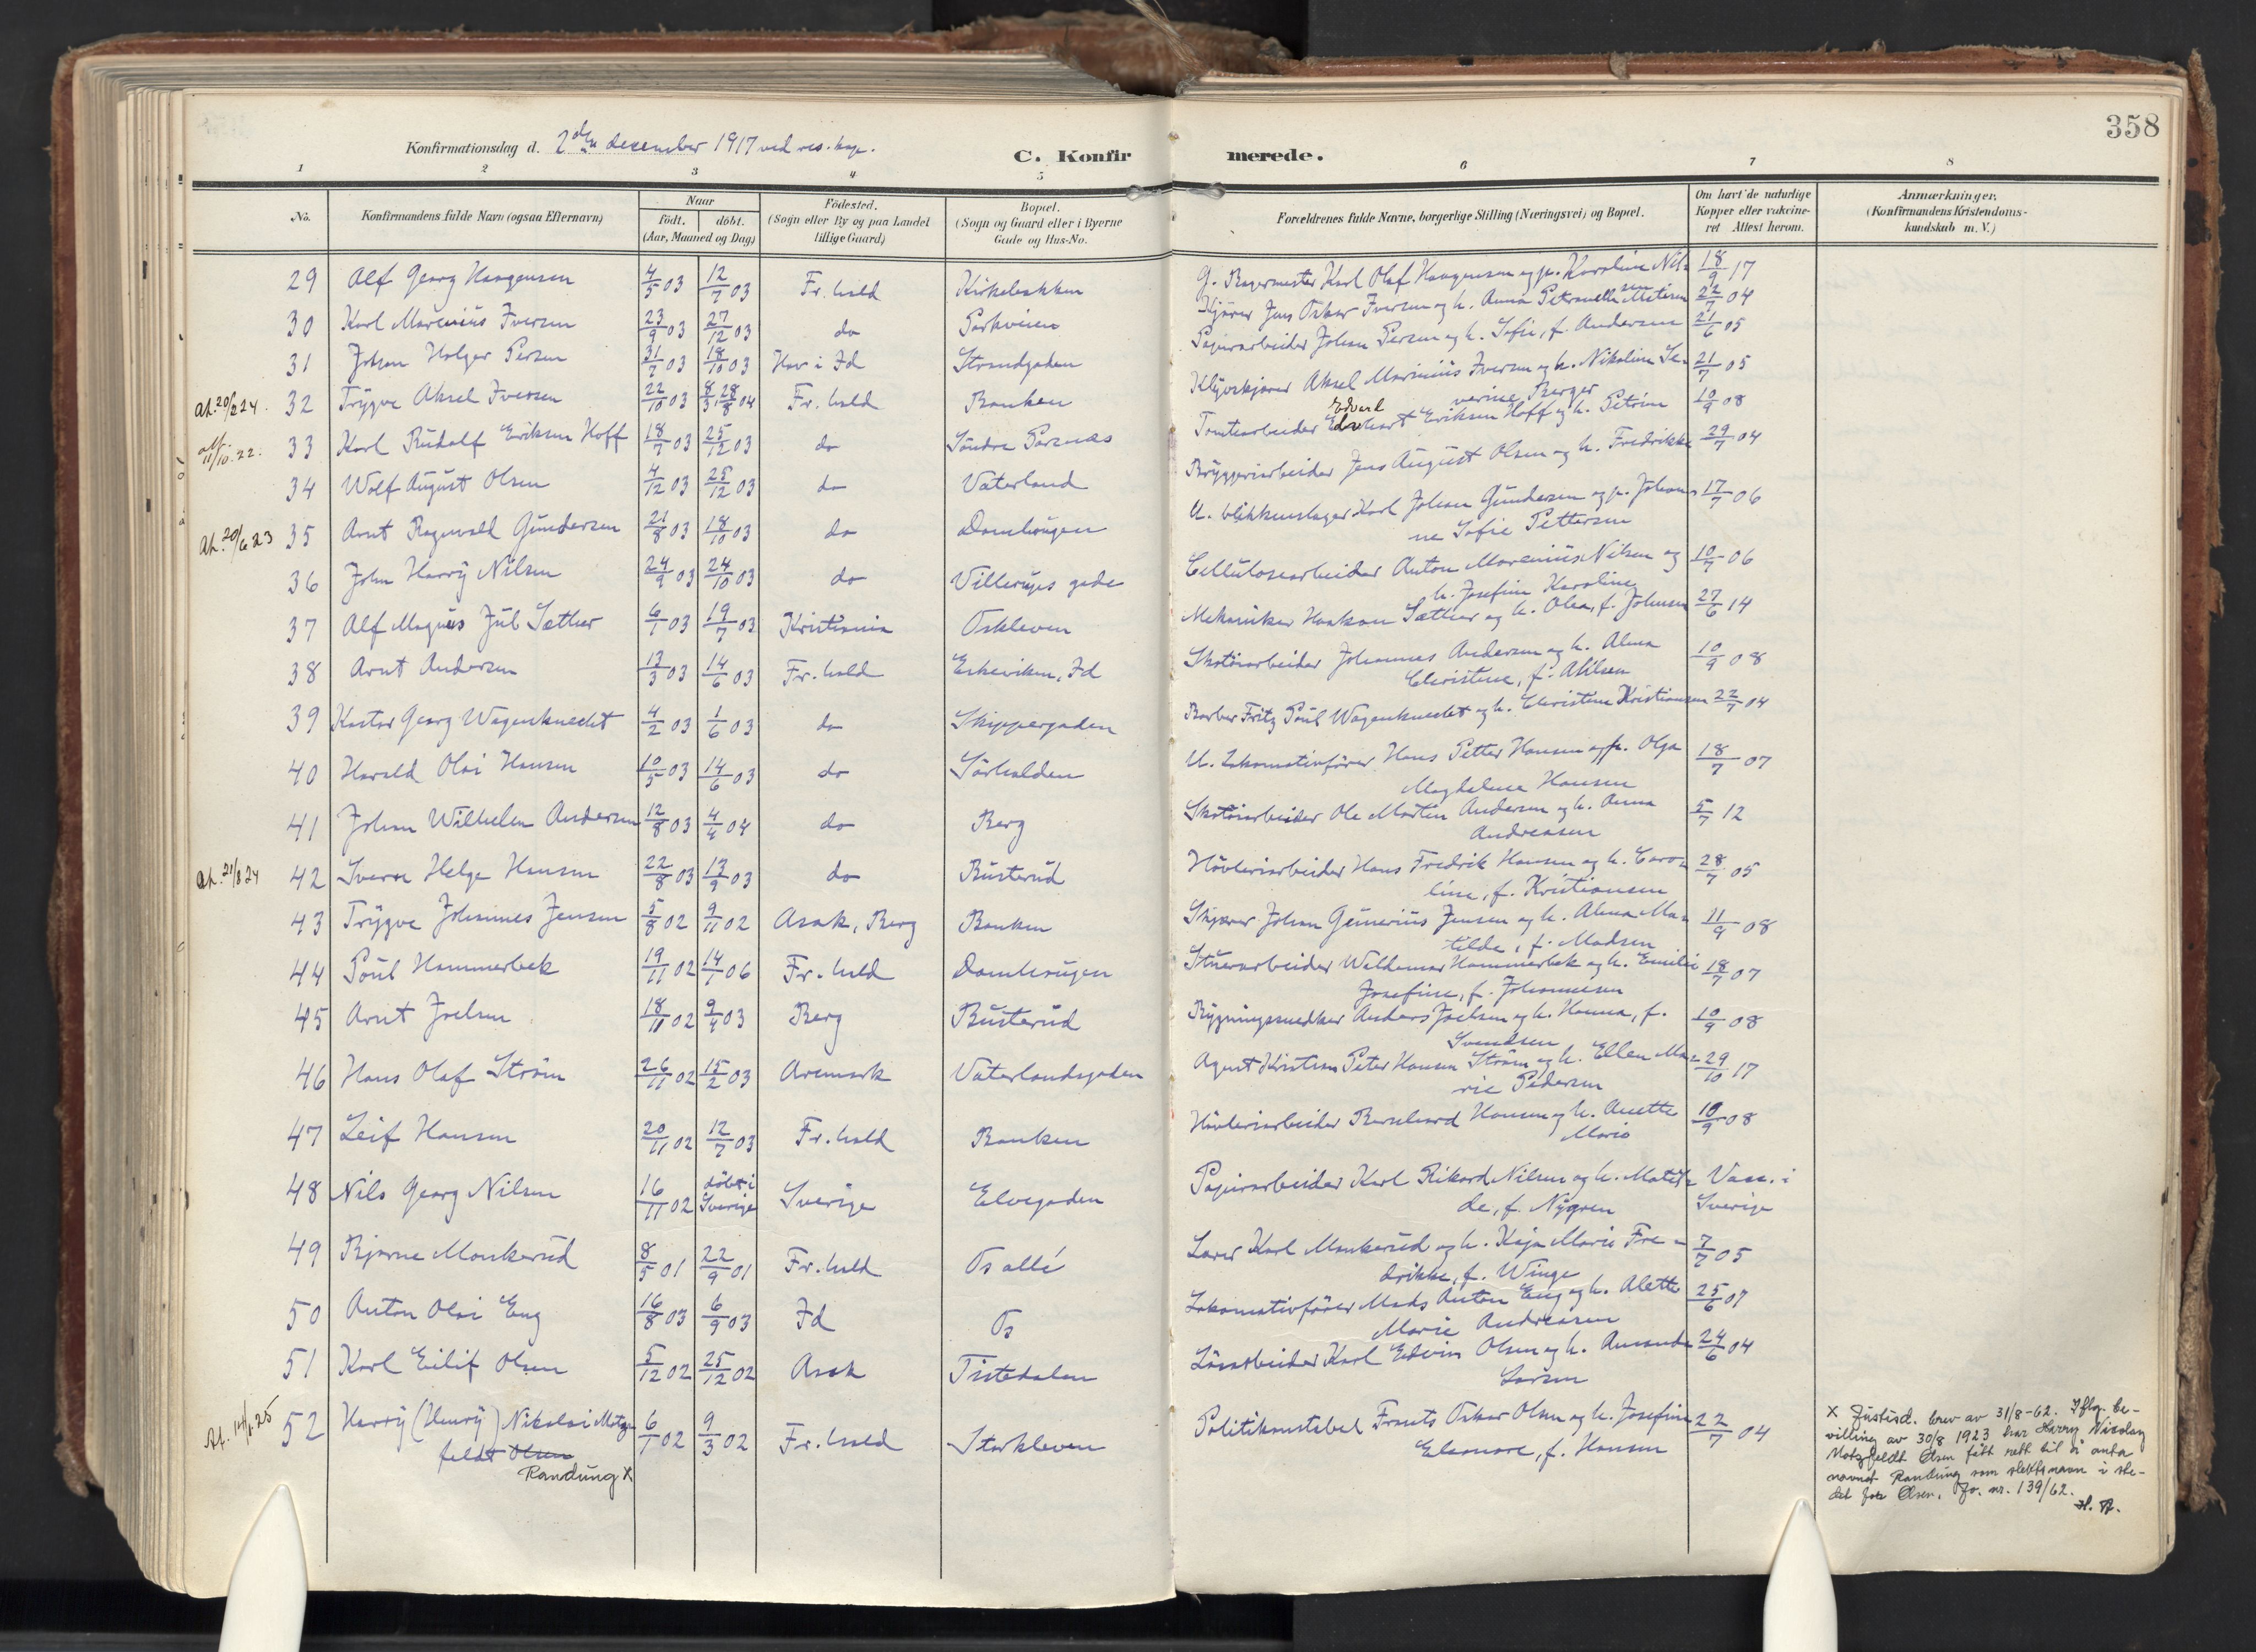 358
Konfirmationsdag d. 2den desember 1917 ved res. kap.
C. Konfirmerede.
1 2 3 4 5 6 7 8
No. Konfirmandens fulde Navn (ogsaa Efternavn) Naar Födested. Bopæl. Forældrenes fulde Navne, borgerlige Stilling (Næringsvei) og Bopæl. Om havt de naturlige Anmærkninger.
födt. döbt. (Sogn eller By og paa Landet (Sogn og Gaard eller i Byerne Kopper eller vakcine- (Konfirmandens Kristendoms-
(Aar, Maaned og Dag) tillige Gaard) Gade og Hus-No. ret Attest herom. kundskab m. V.)
29 Alf Georg Haagensen 4/5 03 12/7 03 Fr.hald Kirkebakken G. Bagermester Karl Olaf Haagensen og p. Karoline Nil- 18/9 17
sen
30 Karl Marenius Iversen 23/9 03 27/12 03 do Parkveien Kjører Jens Oskar Iversen og h. Anna Petronelle 22/7 04
31 Johan Holger Persen 31/7 03 18/10 03 Hov i Id Strandgaden Papirarbeider Johan Persen og h. Sofie, f. Andersen 21/6 05
At. 20/2 24. 32 Trygve Aksel Iversen 22/10 03 8/3, 28/8 04 Fr.hald Banken Aksel Marinius Iversen og h. Nikoline Se- 21/7 05
verine Berger
Edvard
att. 11/10.22. 33 Karl Rudolf Eriksen Hoff 18/7 03 25/12 03 do Søndre Tomtearbeider Eriksen Hoff og h. Petrine 10/9 08
34 Wolf August Olsen 4/12 03 25/12 03 do Vaterland Bryggeriarbeider Jens August Olsen og h. Fredrikke 29/7 04
At. 20/6 23 35 Arnt Ragnvald Gundersen 21/8 03 18/10 03 do Damhaugen U. blikkenslager Karl Johan Gundersen og p. Johan- 17/7 06
ne Sofie Pettersen
36 John Harry Nilsen 24/9 03 24/10 03 do gade Cellulosearbeider Anton Marenius Nilsen og 10/7 06
h. Josefine Karoline
37 Alf Magnus Jul Sæther 6/1 03 19/7 03 Kristiania Oskleven Mekaniker Haakon Sæther og h. Olea, f. Johnsen 27/6 14
38 Arnt Andersen 13/3 03 14/6 03 Fr.hald Eskeviken, Id Skotøiarbeider Johannes Andersen og h. Alma 10/9 08
Christine, f. Ahlsen
39 Kastor Georg Wagenknecht 4/2 03 1/6 03 do Skippergaden Barber Fritz Paul Wagenknecht og h. Christine Kristiansen 22/7 04
40 Harald Olai Hansen 10/5 03 14/6 03 do Sørhalden U. Lokomotivfører Hans Petter Hansen og p. Olga 18/7 07
Magdalena Hansen
41 Johan Wilhelm Andersen 12/8 03 4/4 04 do Berg Skotøiarbeider Ole Martin Andersen og h. Anna 5/7 12
Andreasen
At. 21/8 24 42 Sverre Helge Hansen 22/8 03 13/9 03 do Busterud Høvleriarbeider Hans Fredrik Hansen og h. Caro- 28/7 05
line, f. Kristiansen
43 Trygve Johannes Jensen 5/8 02 9/11 02 Asak, Berg Banken Johan Jensen og h. Alma Ma- 11/9 08
tilde, f. Madsen
44 Paul Hammerbek 19/11 02 14/1 06 Fr.hald Damhaugen Stuerarbeider Waldemar Hammerbek og h. Emilie 18/7 07
Josefine, f. Johannesen
45 Arnt Joelsen 18/11 02 9/4 03 Berg Busterud Bygningssnedker Anders Joelsen og h. Hanna, f. 10/9 08
Svendsen
46 Hans Olaf Strøm 26/11 02 15/2 03 Aremark Vaterlandsgaden Agent Kristian Peter Hansen Strøm og h. Ellen Ma- 29/10 17
rie Pedersen
47 Leif Hansen 20/11 02 12/7 03 Fr.hald Banken Høvleriarbeider Bernhard Hansen og h. Anette 10/9 08
Marie
48 Nils Georg Nilsen 16/11 02 døbt i Sverige Sverige Elvegaden Papirarbeider Karl Rikard Nilsen og h. Matil- Vacc. i
de, f. Nygren Sverige
49 Bjarne Monkerud 8/5 01 22/9 01 Fr.hald Os allé Lærer Karl Monkerud og h. Kaja Marie Fre- 7/7 05
drikke, f. Winge
50 Anton Olai Eng 16/8 03 6/9 03 Id Os Lokomotivfører Mads Anton Eng og h. Alette 25/6 07
Marie Andreasen
51 Karl Eilif Olsen 5/12 02 25/12 02 Asak Tistedalen Løsarbeider Karl Edvin Olsen og h. Amanda 24/6 04
Larsen
At. 14/1 25 52 Harry (Henry) Nikolai Motz- 6/1 02 9/3 02 Fr.hald Storkleven Politikonstabel Frants Oskar Olsen og h. Josefine 22/7 04
feldt Olsen Eleonore, f. Hansen
Randung X
X Justisd. brev av 31/8-62. Iflg. be-
villing av 30/8 1923 har Harry Nicolay
Motzfeldt Olsen fått rett til å anta
navnet Randung som slektsnavn i ste-
det for Olsen. Jo. nr. 139/62.
H. A.